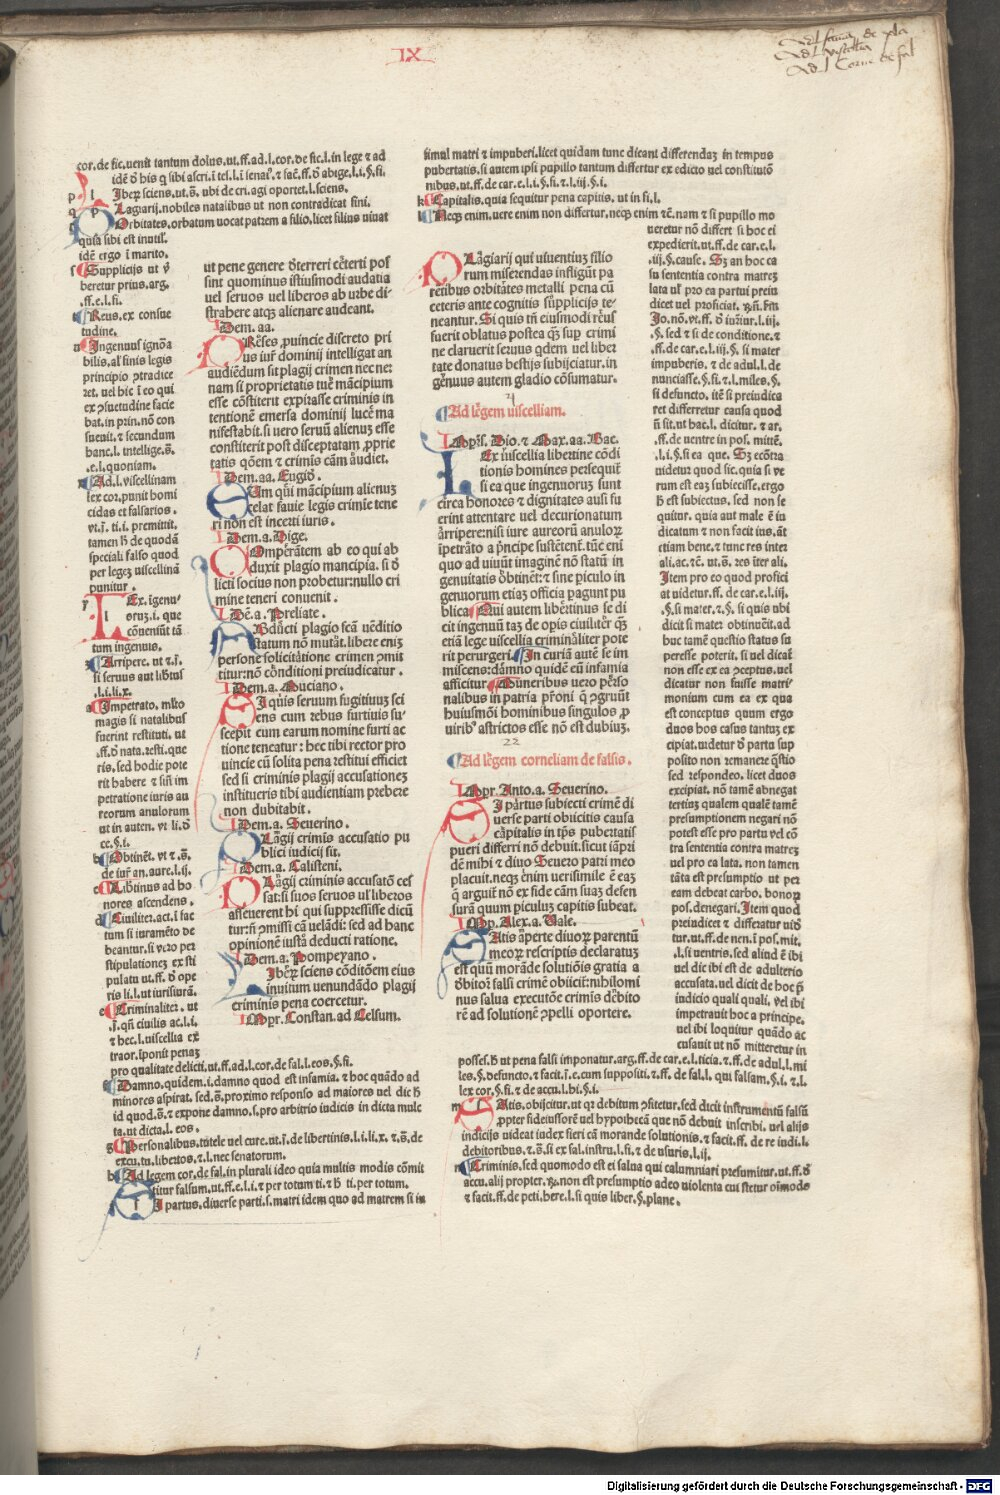 IX
Ad l. fauiā de pla
Ad l. viscelliā
Ad l. Corne de fal
cor.de sic.uenit tantum dolus.ut.ff.ad.l.cor.de sic.l.in lege ⁊ ad
Iberꝝ sciens.ut.s̄. ubi de cri.agi oportet.l.sciens.
Plagiarij.nobiles natalibus ut non contradicat fini.
Orbitates.orbatum uocat patrem a filio.licet filius uiuat
quia sibi est inutil̓.
idē ergo ī marito.
Supplicijs ut v̄
beretur prius.arg.
.ff.e.l.fi.
Reus.ex consue
tudine.
Ingenuus ignōa
bilis.al̓ sinis legis
principio ꝯtradice
ret. uel hic ī eo qui
ex ꝯsuetudine facie
bat.in prin.nō con
sueuit.⁊ secundum
hanc.l. intellige.s̄.
.e.l.quoniam.
Ad.l.viscellinam
lex cor.punit homi
cidas et falsarios.
vt.ī. ti.i. premittit.
tamen h̓ de quodā
speciali falso quod
per legeꝫ uiscellinā
punitur.
Lex.īgenu'
oruꝫ.i. que
cōueniūt tā
tum ingenuis.
Arripere. ut ⁊.ī.
si seruus aut libtus̓
.l.i.li.x.
Impetrato. ml̓to
magis si natalibus
fuerint restituti. ut
.ff.ð nata.resti.que
ris.sed hodie pote
rit habere ⁊ sin̄ im
petratione iuris au
reorum anulorum
ut in auten. vt li.ð
ce.§.i.
Obtinēt. vt ⁊ .s̄.
de iur̓ an.aure.l.ij.
Libtinus ad ho
nores ascendens.
Ciuiliter.act.ī fac
tum si iurametō de
beantur.si vero per
stipulationeꝫ ex sti
pulatu ut.ff. ð ope
ris li.l.ut iurisiurā.
Criminaliter. ut
.ī.qn̄ ciuilis ac.l.i.
⁊ hec.l.uiscellia ex
traor.īponit penaꝫ
pro qualitate delicti.ut.ff.ad.l.cor.de fal.l.eos.§.fi.
Damno.quidem.i.damno quod est infamia.⁊ hoc quādo ad
minores aspirat. sed.s̄.proximo responso ad maiores uel dic h̓
id quod.s̄.⁊ expone damno.s.pro arbitrio iudicis in dicta mulc
ta.ut dicta.l. eos.
Personalibus.tutele uel cure.ut.ī.de libertinis.l.i.li.x.⁊.s̄.de
excu.tu.libertos.⁊.l.nec senatorum.
Ad legem cor.de fal.in plurali ideo quia multis modis cōmit
titur falsum.ut.ff.e.l.i.⁊ per totum ti.⁊ h̓ ti.per totum.
Si partus.diuerse parti.s.matri idem quo ad matrem si is
ut pene genere ðterreri cēterti pos
sint quominus istiusmodi audatia
uel seruos uel liberos ab urbe di
strahere atqꝫ alienare audeant.
Idem.aa.
PReses ꝓuincie discreto pri
us iur̓ dominij intelligat an
audiēdum sit plagij crimen nec ne:
nam si proprietatis tue māncipium
esse cōstiterit expirasse criminis in
tentionē emersa dominij lucē ma
nifestabit.si uero seruū alienuꝫ esse
constiterit post disceptatam ꝓprie
tatis qōem ⁊ crimis cām audiet.
Idem.aa. Eugiō.
CUm qui māncipium alienuꝫ
celat fauie legis crimīe tene
ri non est incerti iuris.
Idem.a.Dige.
COmperātem ab eo qui ab
duxit plagio mancipia. si ð
licti socius non probetur:nullo cri
mine teneri conuenit.
Idē.a. Preliate.
ABducti plagio scā uēditio
statum nō mutāt.libere eniꝫ
persone solicitatione crimen ꝯmit
titur:nō cōditioni preiudicatur.
Idem.a. Muciano.
SI quis seruum fugitiuuꝫ sci
ens cum rebus furtiuis su'
scepit cum earum nomine furti ac
tione teneatur : hec tibi rector pro
uincie cū solita pena restitui efficiet
sed si criminis plagij accusationeꝫ
institueris tibi audientiam prebere
non dubitabit.
Idem.a. Seuerino.
PLāgij crimis accusatio pu
blici iudicij sit.
Idem.a. Calisteni.
PLāgij criminis accusatō ces
sat:si suos seruos ul̓ liberos
asseuerent hi qui suppressisse dicū
tur:n̄ ꝯmissi cā uelādi: sed ad hanc
opinionē iustā deducti ratione.
Idem.a. Pompeyano.
LIberꝝ sciens cōditōem eius
inuitum uenundādo plagij
criminis pena coercetur.
Imꝑr. Constan.ad Celsum.
simul matri ⁊ impuberi.licet quidam tunc dicant differendaꝫ in tempus
pubertatis.si autem ipsi pupillo tantum differtur ex edicto uel constitutō
nibus.ut.ff.de car.e.l.i.§.fi.⁊.l.iij.§.i.
Capitalis.quia sequitur pena capitis. ut in fi.l.
Neqꝫ enim.uere enim non differtur.neqꝫ enim ⁊c̄.nam ⁊ si pupillo mo
PLāgiarij qui uiuentiuꝫ filio
rum miserendas infligūt pa
rentibus orbitātes metalli pena cū
ceteris ante cognitis supplicijs te'
neantur. Si quis tn̄ eiusmodi re͡us
fuerit oblatus postea qꝫ sup̄ crimi
ne claruerit seruus qdem uel liber
tate donatus bestijs subijciatur.in
gēnuus autem gladio cōsumatur.
21
Ad lēgem uiscelliam.
Imꝑrs. Dio.⁊ Max.aa. Bac.
LEx uiscellia libertine cōdi
tionis homines persequit̄
si ea que ingenuoruꝫ sunt
circa honores ⁊ dignitates ausi fu
erint attentare uel decurionatum
ārripere:nisi iure aureorū anulorꝝ
īpetrāto a pŕncipe sustētent̄.tūc eni
quo ad uiuūt imaginē nō statū in
genuitatis obtinēt:⁊ sine piculo in
genuorum etiaꝫ officia pagunt pu
blica. Qui autem libertinus se di
cit ingenuū taꝫ de opis ciuilit̄er qꝫ
etiā lege uiscellia criminaliter pote
rit perurgeri. In curiā autē se im
miscens:dāmno quidē cū infamia
afficitur. Muneribus uero pērso
nalibus in patria pr̄oni q ꝯgruūt
huiusmōi hominibus singulos ꝓ
uirib' astrictos esse nō est dubiuꝫ.
22
Ad lēgem corneliam de falsis.
Imꝑr. Anto.a. Seuerino.
SI pārtus subiecti crimē di
uerse parti obiicitis causa
cāpitalis in tꝑs pubertatis
pueri differri nō debuit.sicut iāpri
dē mihi ⁊ diuo Seuero patri meo
placuit.neqꝫ ēnim uerisimile ē eaꝫ
q̄ arguit̄ nō ex fide cām suaꝫ defen
surā quum piculuꝫ capitis subeat.
Imp. Alex.a. Vale.
SAtis āperte diuoꝝ parentū
meoꝝ rescriptis declaratuꝫ
est quū morāde solutiōis gratia a
ðbitore falsi crimē obiicit̄:nihilomi
nus salua executōe crimis dēbito
rē ad solutionē ꝯpelli oportere.
ueretur nō differt̄ si hoc ei
expedierit.ut.ff.de car.e.l.
.iij.§.cause. Sꝫ an hoc ca
su sententia contra matreꝫ
lata ul̓ pro ea partui preiu
dicet uel proficiat.
Jo.nō.vt.ff. ð iur̄iur.l.iij.
.§.sed ⁊ si de conditione.⁊
.ff.de car.e.l.iij.§. si mater
impuberis. ⁊ de adul.l.de
nunciasse.§.fi.⁊.l.miles.§.
si defuncto. itē si preiudica
ret differretur causa quod
n̄ sit.ut hac.l. dicitur. ⁊ ar.
.ff.de uentre in pos. mittē.
.l.i.§.si ea que. Sꝫ ecōtra
uidetur quod sic.quia si ve
rum est eaꝫ subiecisse.ergo
h̓ est subiectus.sed non se
quitur. quia aut male ē iu
dicatum ⁊ non facit ius.āt
etiam bene.⁊ tunc res inter
ali.ac.⁊c. ut.s̄. res īter ali.
Item pro eo quod profici
at uidetur.ff. de car.e.l.iij.
.§.si mater.⁊.§. si quis ubi
dicit si mater obtinuerit.ad
huc tamē questio status su
peresse poterit. si uel dicat̄
non esse ex ea ꝯceptus.uel
dicatur non fuisse matri'
monium cum ea ex qua
est conceptus quum ergo
duos hos casus tantuꝫ ex
cipiat.uidetur ð partu sup
posito non remanere q̄stio
sed respondeo. licet duos
excipiat. nō tamē abnegat
tertiuꝫ qualem qualē tamē
presumptionem negari nō
potest esse pro partu vel cō
tra sententia contra matreꝫ
uel pro ea lata. non tamen
tāta est presumptio ut per
eam debeat carbo. bonoꝝ
pos.denegari. Item quod
preiudicet ⁊ differatur uið
tur.ut.ff.de uen.ī pos.mit.
.l.si uentris.sed aliud ē ibi
uel dic ibi est de adulterio
accusata.uel dicit de hoc ꝑ
iudicio quali quali. vel ibi
impetrauit hoc a principe.
uel ibi loquitur quādo ac
cusauit ut nō mitteretur in
posses.h̓ ut pena falsi imponatur.arg.ff.de car.e.l.ticia.⁊.ff.de adul.l.mi
les.§.defuncto.⁊ facit.ī.e.cum suppositi.⁊.ff.de fal.l. qui falsam.§.i.⁊.l.
lex cor.§.fi.⁊ de accu.l.hi.§.i.
SAtis.obijcitur.ut qꝫ debitum ꝯfitetur.sed dicit instrumentū falsū
ꝓpter fideiussorē uel hypothecā que nō debuit inscribi. uel alijs
indicijs uideat iudex fieri cā morande solutionis.⁊ facit.ff. de re iudi.l.
debitoribus.⁊.s̄.si ex fal.instru.l.fi.⁊ de usuris.l.ij.
Criminis.sed quomodo est ei salua qui calumniari presumitur.ut.ff.ð
accu.alij propter.non est presumptio adeo uiolenta cui stetur oīmodo
⁊ facit.ff.de peti.here.l.si quis liber.§.plane.
Digitalisierung gefördert durch die Deutsche Forschungsgemeinschaft - DFG